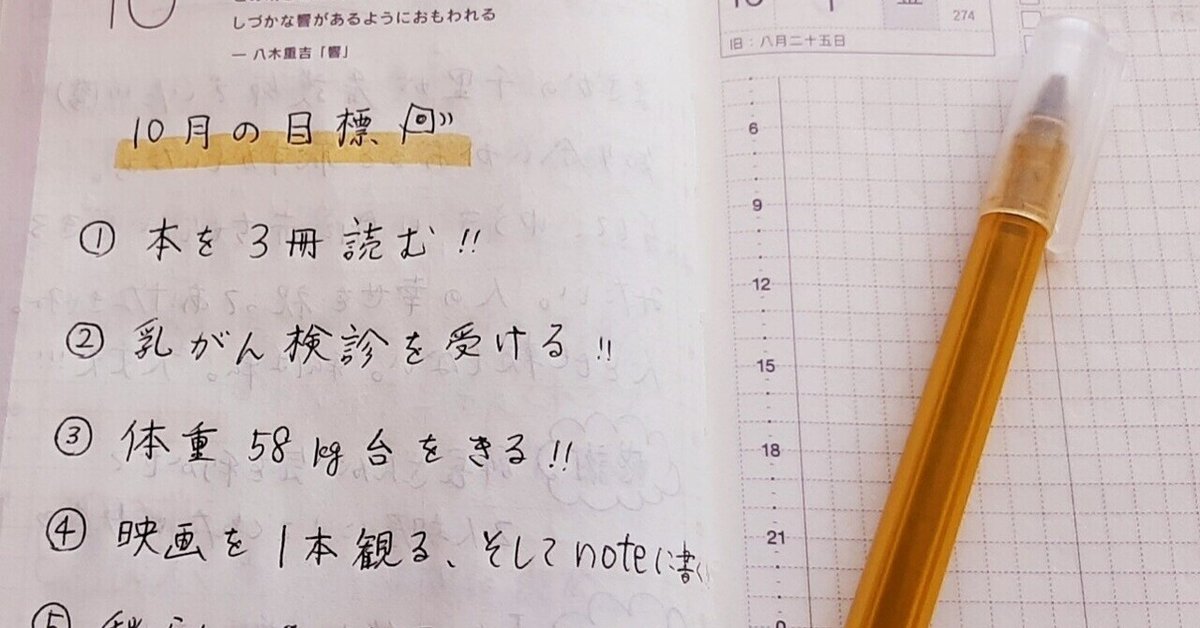 10
しづかな響があるようにおもわれる
― 八木重吉「響」
10月の目標
① 本を3冊読む!!
② 乳がん検診を受ける!!
③ 体重58kg台をきる!!
④ 映画を1本観る、そしてnoteに書く
⑤
金
274
旧:八月二十五日
6
9
12
15
18
21
0